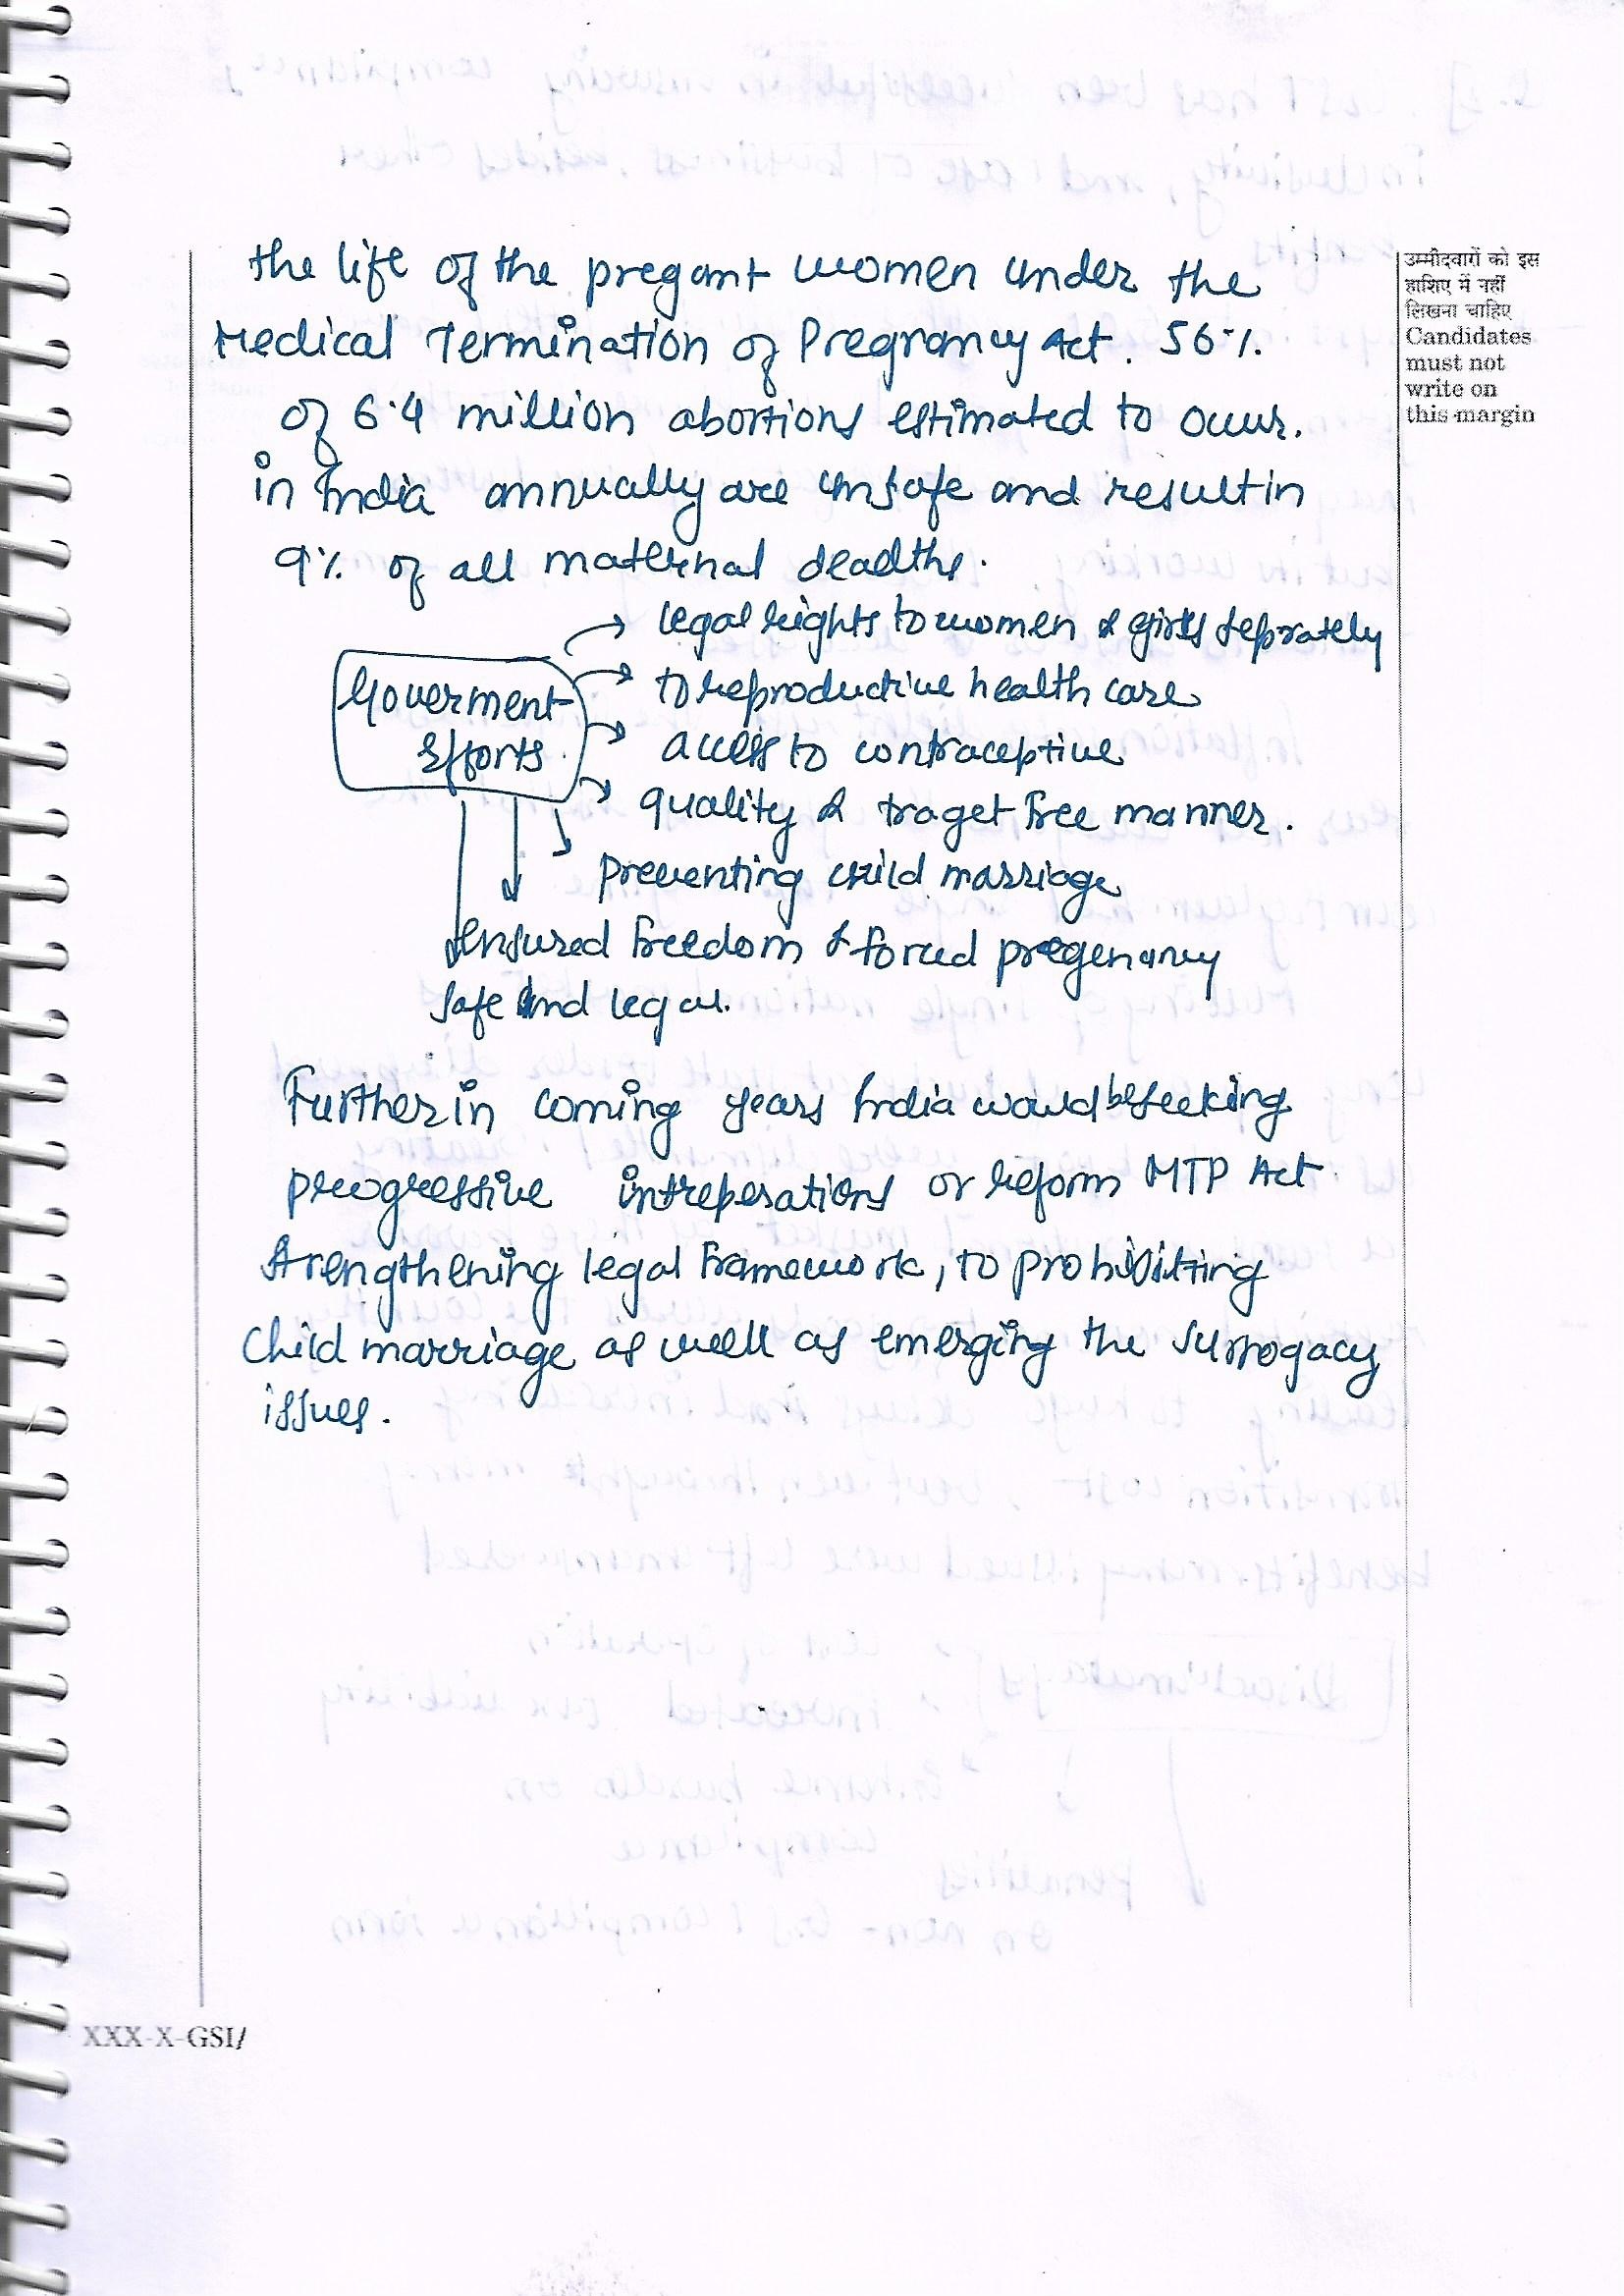 the life of the pregant women under the
Medical Termination of Pregnancy Act. 56%
of 6.4 million abortions estimated to occur.
in India annually are unsafe and result in
9% of all maternal deadths.
legal rights to women & girls seprately
Goverment
Efforts
to reproductive health care
access to contraceptive
quality & traget free manner.
preventing child marriage
ensured freedom & forced pregenancy
safe and legal.
Further in coming years India would be seeking
progressive intreperations or reform MTP Act
strengthening legal framework, to prohibiting
Child marriage as well as emerging the surrogacy
issues.
उम्मीदवारों को इस
हाशिए में नहीं
लिखना चाहिए
Candidates
must not
write on
this margin
XXX-X-GSI/